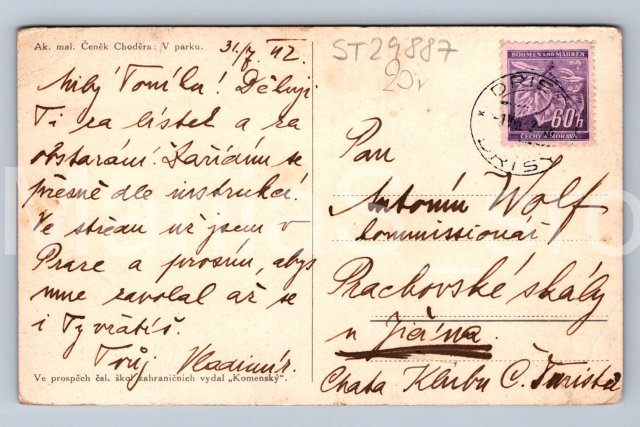 Ak. mal. Čeněk Choděra: V parku.
31./7. 42
ST29887
20,-
Milý Toníku! Děkuji
Ti za lístek a za
obstarání. Zařídím se
přesně dle instrukcí.
Ve středu už jsem v
Praze a prosím, abys
mne zavolal až se
i Ty vrátíš.
Tvůj Vladimír.
Ve prospěch čsl. škol zahraničních vydal „Komenský“.
BÖHMEN UND MÄHREN
60h
ČECHY A MORAVA
Pan
Antonín Wolf
kommissionář
Prachovské skály
u Jičína
Chata Klubu Č. Turistů